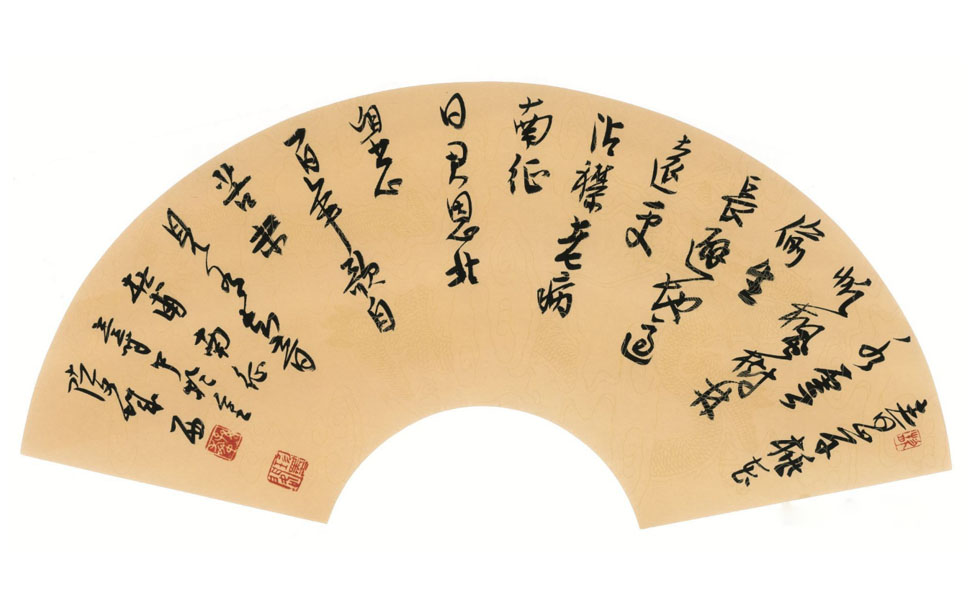 春岸桃花
水雲
帆楓樹林
偷生
長避地適
遠更
沾襟老病
南征
日君恩北
望心
百年歌自
苦未
見有知音
杜甫南征